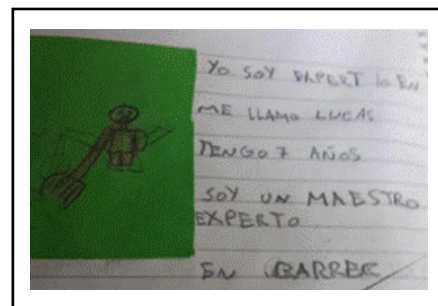 YO SOY EXPERT LO EN
ME LLAMO LUCAS
TENGO 7 AÑOS
SOY UN MAESTRO
EXPERTO
EN BARRER